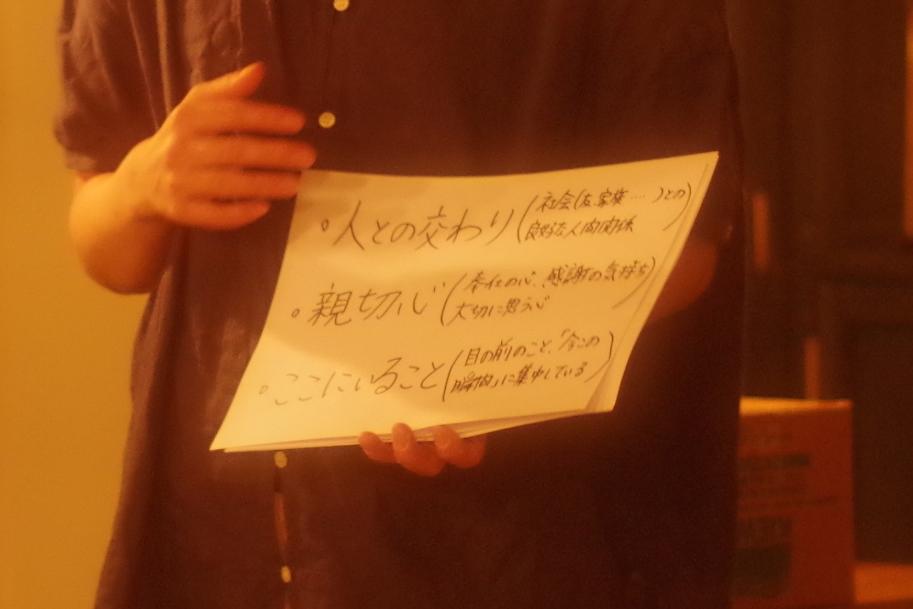 ○人との交わり(社会(友、家族…)との
良好な人間関係)
○親切心(奉仕の心、感謝の気持ち
大切に思う心)
○ここにいること(目の前のこと、「今この
瞬間」に集中している)